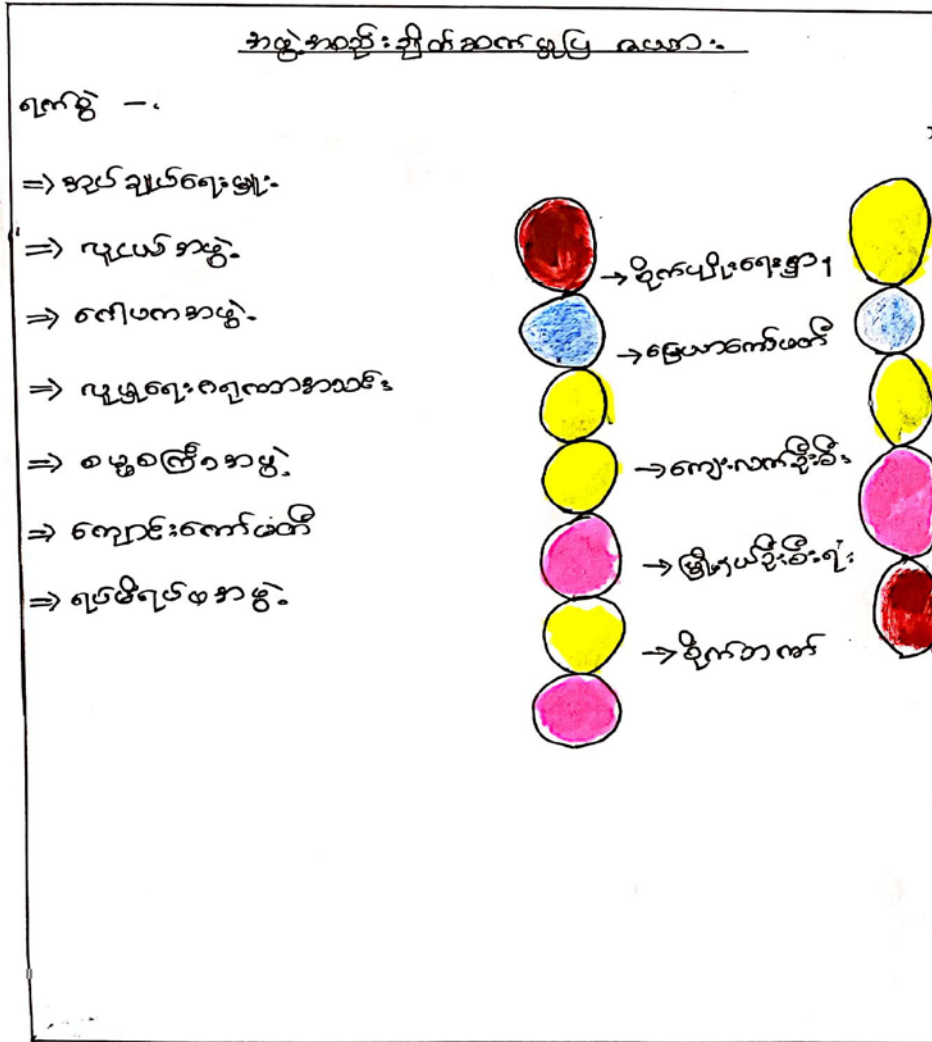 အဖွဲ့အစည်းချိတ်ဆက်မှုပြ ဇယား
ရက်စွဲ -
⇒ အုပ်ချုပ်ရေးမှူး
⇒ လူငယ်အဖွဲ့
⇒ ဂေါပကအဖွဲ့
⇒ လူမှုရေးဂရုဏာအသင်း
⇒ ဓမ္မစကြာအဖွဲ့
⇒ ကျောင်းကော်မတီ
⇒ ရပ်မိရပ်ဖအဖွဲ့
→ စိုက်ပျိုးရေးဌာန
→ မြေယာကော်မတီ
→ ကျေးလက်ဦးစီး
→ မြို့နယ်ဦးစီးရုံး
→ စိုက်ဘဏ်